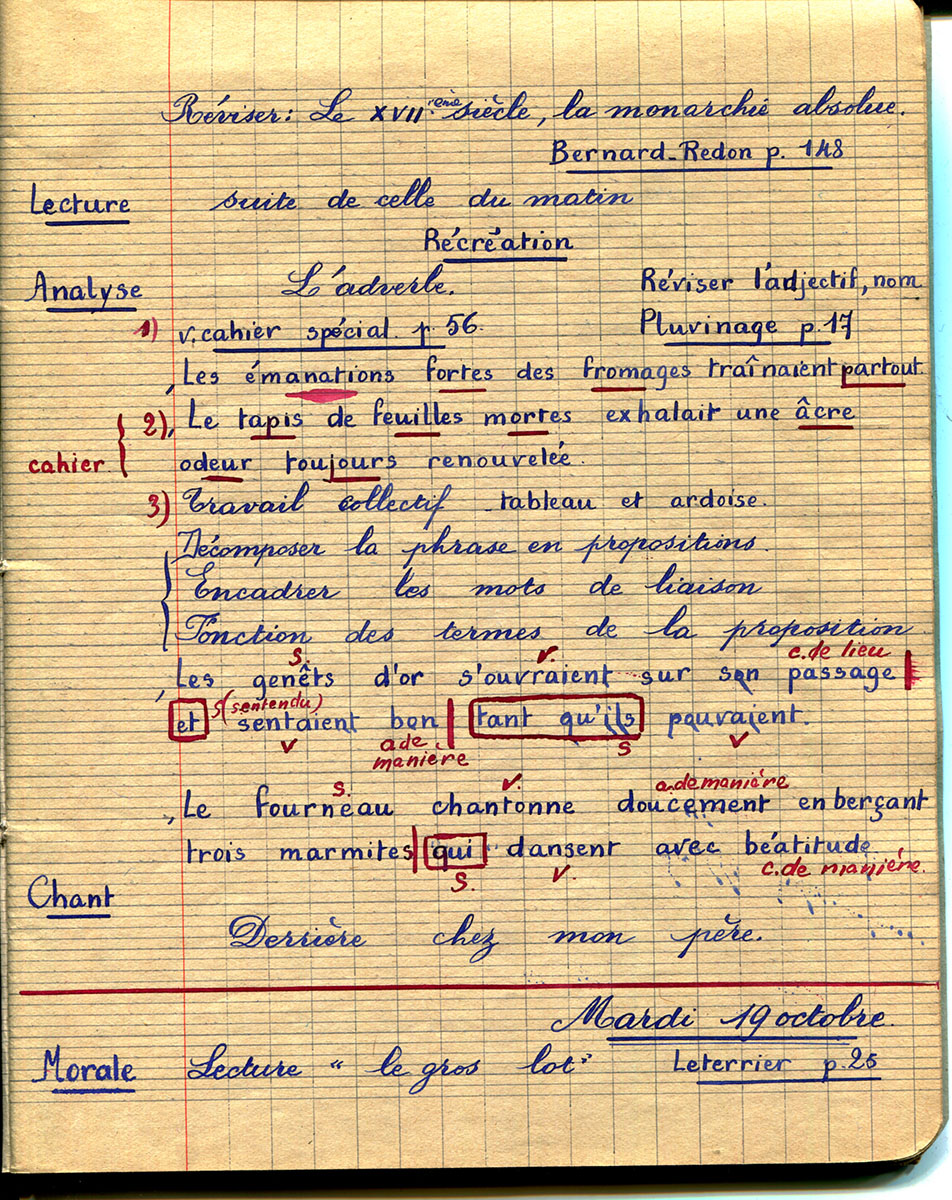 Réviser: Le XVIIème siècle, la monarchie absolue.
Bernard-Redon p. 148
Lecture suite de celle du matin
Récréation
Analyse L'adverbe. Réviser l'adjectif, nom
1) v. cahier spécial p. 56. Pluvinage p. 17
Les émanations fortes des fromages traînaient partout.
2) Le tapis de feuilles mortes exhalait une âcre
cahier odeur toujours renouvelée.
3) Travail collectif tableau et ardoise.
Décomposer la phrase en propositions.
Encadrer les mots de liaison
Fonction des termes de la proposition
S. V. c. de lieu
Les genêts d'or s'ouvraient sur son passage
S (sentendu)
et sentaient bon tant qu'ils pouvaient.
V a de manière S V
S. V. a. de manière
Le fourneau chantonne doucement en berçant
trois marmites qui dansent avec béatitude.
S. V. c. de manière.
Chant
Derrière chez mon père.
Mardi 19 octobre.
Morale Lecture " le gros lot" Leterrier p. 25